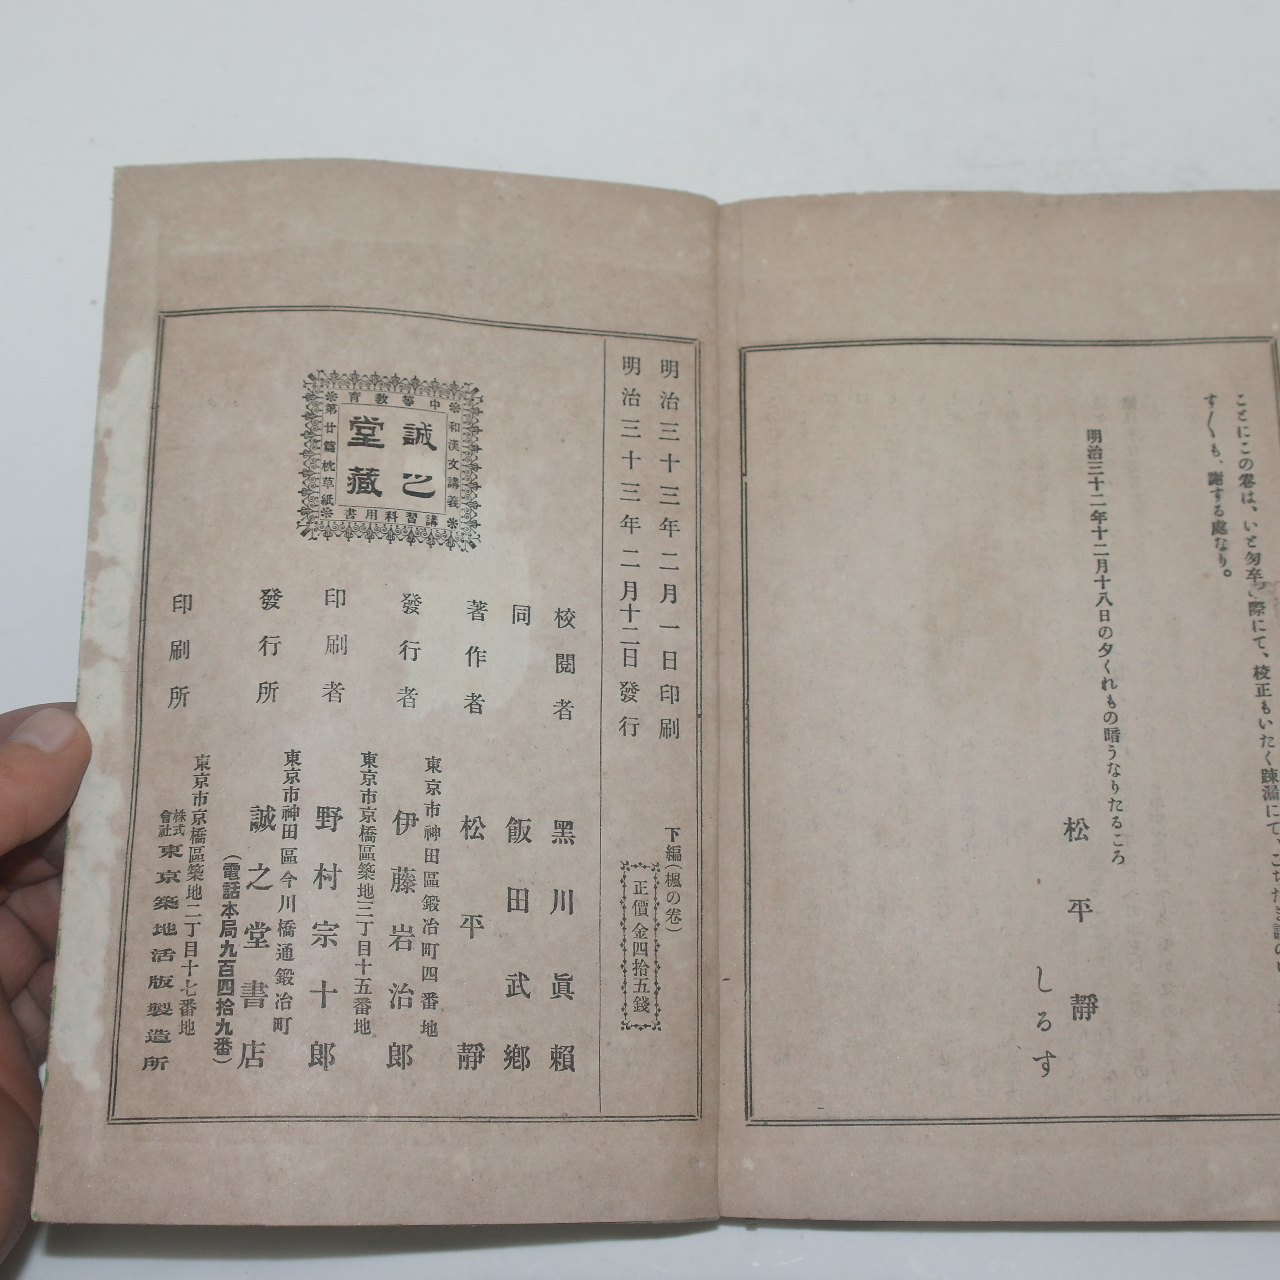 ことにこの卷は、いと匆卒の際にて、校正もいたく踈漏にて、こちたき誤の
す〳〵も、謝する處なり。
明治三十二年十二月十八日の夕くれもの暗うなりたるころ
松平靜
しるす
明治三十三年二月一日印刷
明治三十三年二月十二日發行
下編(楓の卷)
正價金四拾五錢
中等教育
和漢文講義
第廿篇枕草紙
講習科用書
誠之
堂藏
校閲者 黑川眞賴
同 飯田武鄕
著作者 松平靜
東京市神田區鍛冶町四番地
發行者 伊藤岩治郎
東京市京橋區築地三丁目十五番地
印刷者 野村宗十郎
東京市神田區今川橋通鍛冶町
發行所 誠之堂書店
(電話本局九百四拾九番)
東京市京橋區築地二丁目十七番地
印刷所 株式會社東京築地活版製造所